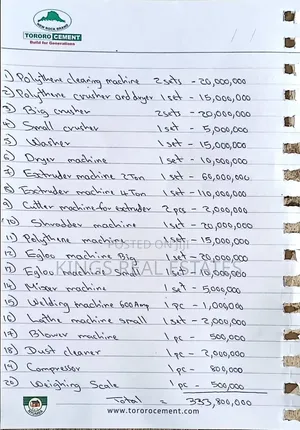 TORORO CEMENT
Build for Generations
1) Polythene cleaning machine 2 sets - 20,000,000
2) Polythene crusher and dryer 1 set - 15,000,000
3) Big crusher 2 sets - 20,000,000
4) Small crusher 1 set - 5,000,000
5) Washer 1 set - 15,000,000
6) Dryer machine 1 set - 10,000,000
7) Extruder machine 2 Ton 1 set - 65,000,000
8) Extruder machine 4 Ton 1 set - 110,000,000
9) Cutter machine for extruder 2 pcs - 2,000,000
10) Shradder machine 1 set - 20,000,000
11) Polythene machine 1 set - 15,000,000
12) Egloo machine Big 1 set - 20,000,000
13) Egloo machine Small 1 set - 10,000,000
14) Mixer machine 1 set - 5,000,000
15) Welding machine 600Amp 1 pc - 1,000,000
16) Lathe machine small 1 set - 2,000,000
17) Blower machine 1 pc - 500,000
18) Dust cleaner 1 pc - 2,000,000
19) Compressor 1 pc - 800,000
20) Weighing Scale 1 pc - 500,000
Total = 333,800,000
www.tororocement.com
POSTED ON JIJI
KINGS REAL ESTATES